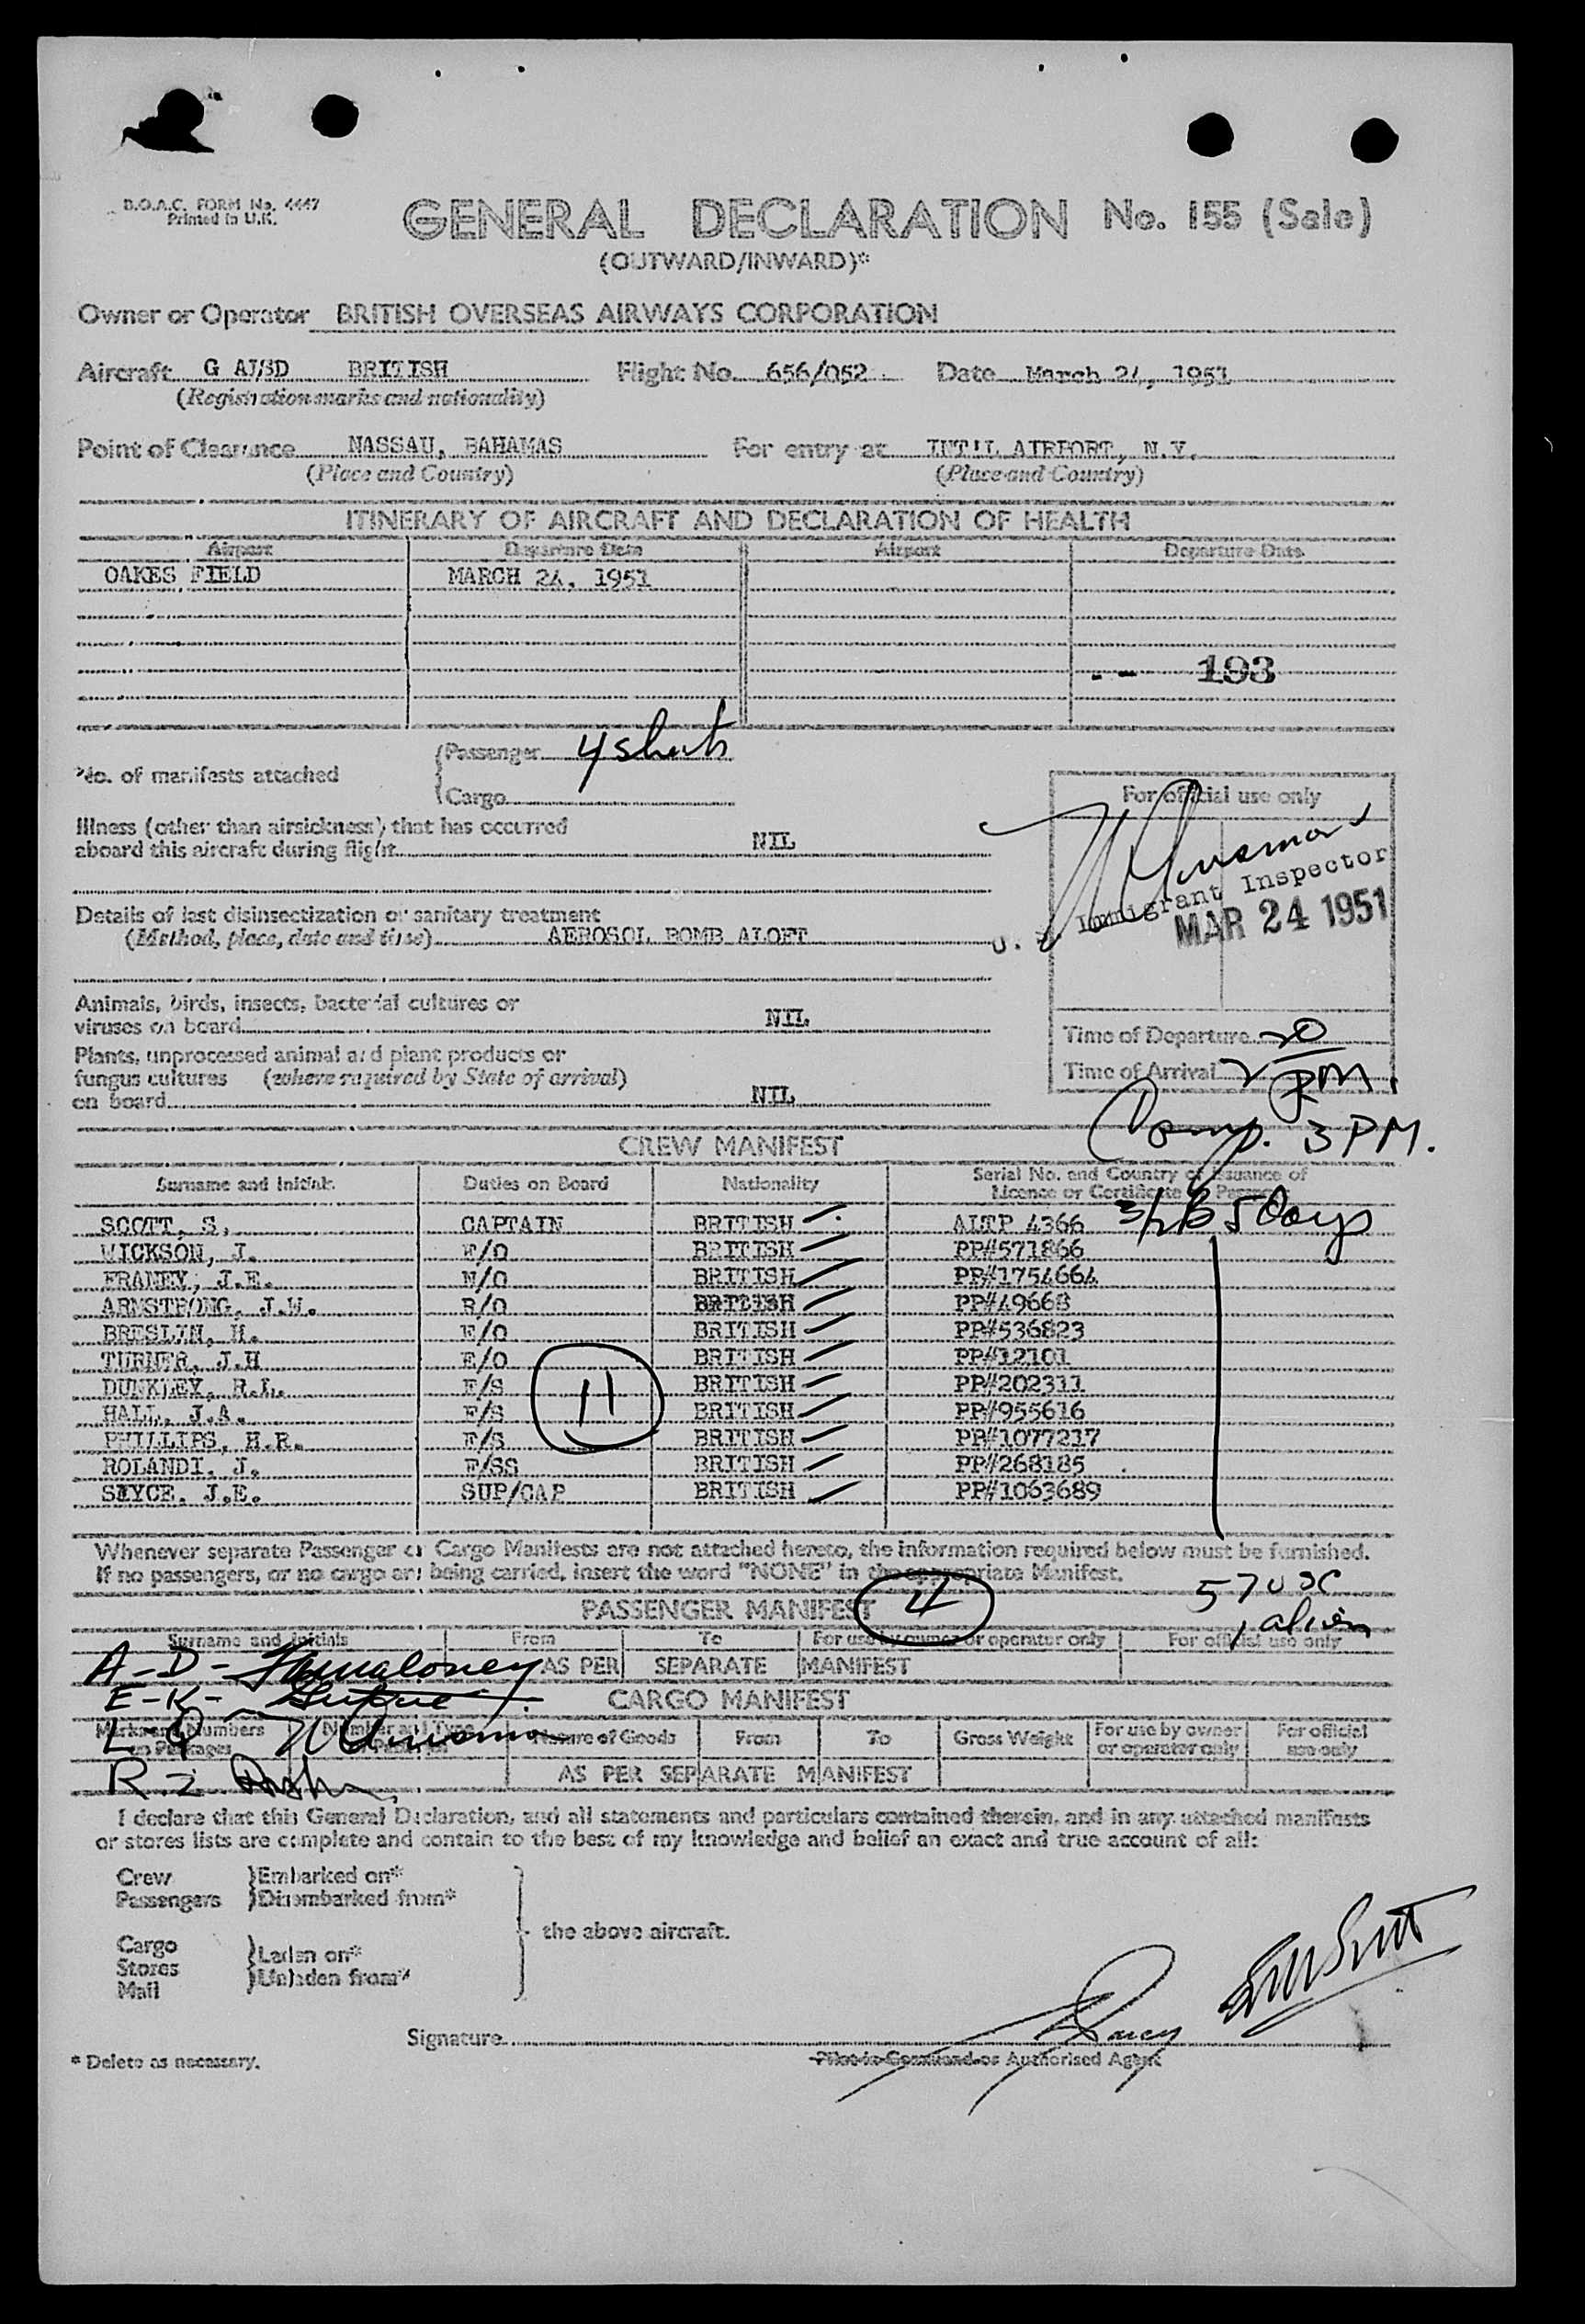 B.O.A.C. FORM No. 4447
Printed in U.K.
GENERAL DECLARATION No. 155 (Sale)
(OUTWARD/INWARD)*
Owner or Operator BRITISH OVERSEAS AIRWAYS CORPORATION
Aircraft G BRITISH Flight No. 656/052 Date March 24, 1951
(Registration marks and nationality)
Point of Clearance NASSAU, BAHAMAS For entry at INT'L AIRPORT, N.Y.
(Place and Country) (Place and Country)
ITINERARY OF AIRCRAFT AND DECLARATION OF HEALTH
Airport Departure Date Airport Departure Date
OAKES FIELD MARCH 24, 1951
193
No. of manifests attached
Passenger 4 sheets
Cargo
For official use only
Illness (other than airsickness) that has occurred
aboard this aircraft during flight NIL
U. S. Immigrant Inspector
MAR 24 1951
Details of last disinsectization or sanitary treatment
(Method, place, date and time) AEROSOL BOMB ALOFT
Animals, birds, insects, bacterial cultures or
viruses on board NIL
Time of Departure
Plants, unprocessed animal and plant products or
fungus cultures (where required by State of arrival)
on board NIL
Time of Arrival 2 20 PM.
Comp. 3 PM.
CREW MANIFEST
Surname and Initials Duties on Board Nationality Serial No. and Country of Issuance of
Licence or Certificate or Passport
SCOTT, S. CAPTAIN BRITISH ALTP 4366 5 Days
WICKSON, J. F/O BRITISH PP#571866
FRANEY, J.E. N/O BRITISH PP#1754664
ARMSTRONG, J.W. R/O BRITISH PP#49668
BRESLYN, H. E/O BRITISH PP#536823
TURNER, J.H E/O BRITISH PP#12101
DUNKLEY, R.L. F/S BRITISH PP#202311
HALL, J.A. F/S BRITISH PP#955616
PHILLIPS, H.R. F/S BRITISH PP#1077217
ROLANDI, J. F/SS BRITISH PP#268185
SAYCE, J.E. SUP/CAP BRITISH PP#1063689
11
Whenever separate Passenger or Cargo Manifests are not attached hereto, the information required below must be furnished.
If no passengers, or no cargo are being carried, insert the word "NONE" in the appropriate Manifest.
57 USC
PASSENGER MANIFEST 4
1 alien
Surname and Initials From To For use by owner or operator only For official use only
A-D- AS PER SEPARATE MANIFEST
E-K-
CARGO MANIFEST
Marks and Numbers on Packages Number and Type Packages Nature of Goods From To Gross Weight For use by owner or operator only For official use only
L-Q
AS PER SEPARATE MANIFEST
R-Z
I declare that this General Declaration, and all statements and particulars contained therein, and in any attached manifests
or stores lists are complete and contain to the best of my knowledge and belief an exact and true account of all:
Crew Embarked on*
Passengers Disembarked from*
the above aircraft.
Cargo
Stores
Mail
Laden on*
Unladen from*
Signature
* Delete as necessary.
Pilot in Command or Authorised Agent